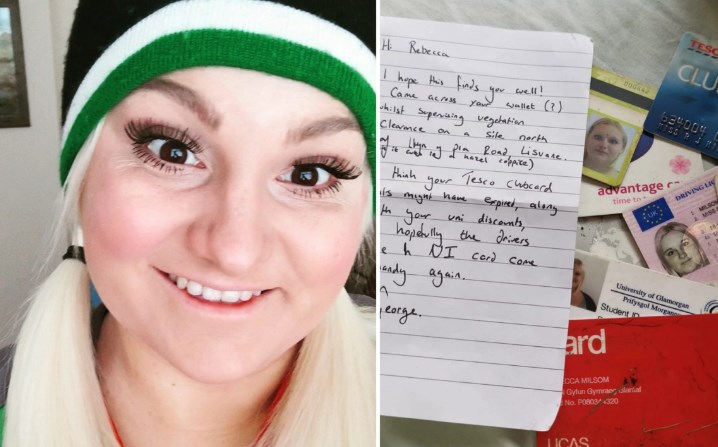 Hi Rebecca
I hope this finds you well!
Came across your wallet (?)
whilst supervising vegetation
Clearance on a site north
of Llwyn y pia Road Lisvane.
think your Tesco Clubcard
might have expired, along
your uni discounts,
hopefully the drivers
NI card come
handy again.
George.
TESCO
CLU
advantage ca
time to
DRIVING LI
MILSO
University of Glamorgan
Prifysgol Morgannwg
Student ID
ard
CCA MILSOM
Gyfun Gymraeg
No.
UCAS